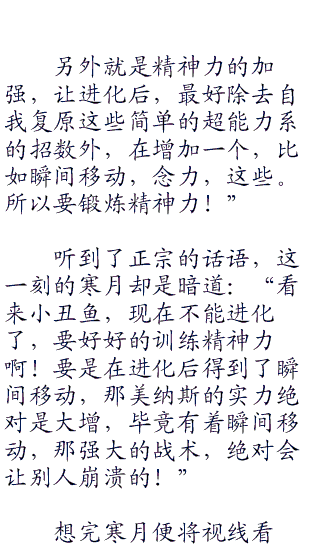 另外就是精神力的加
强，让进化后，最好除去自
我复原这些简单的超能力系
的招数外，在增加一个，比
如瞬间移动，念力，这些。
所以要锻炼精神力！”
听到了正宗的话语，这
一刻的寒月却是暗道：“看
来小丑鱼，现在不能进化
了，要好好的训练精神力
啊！要是在进化后得到了瞬
间移动，那美纳斯的实力绝
对是大增，毕竟有着瞬间移
动，那强大的战术，绝对会
让别人崩溃的！”
想完寒月便将视线看